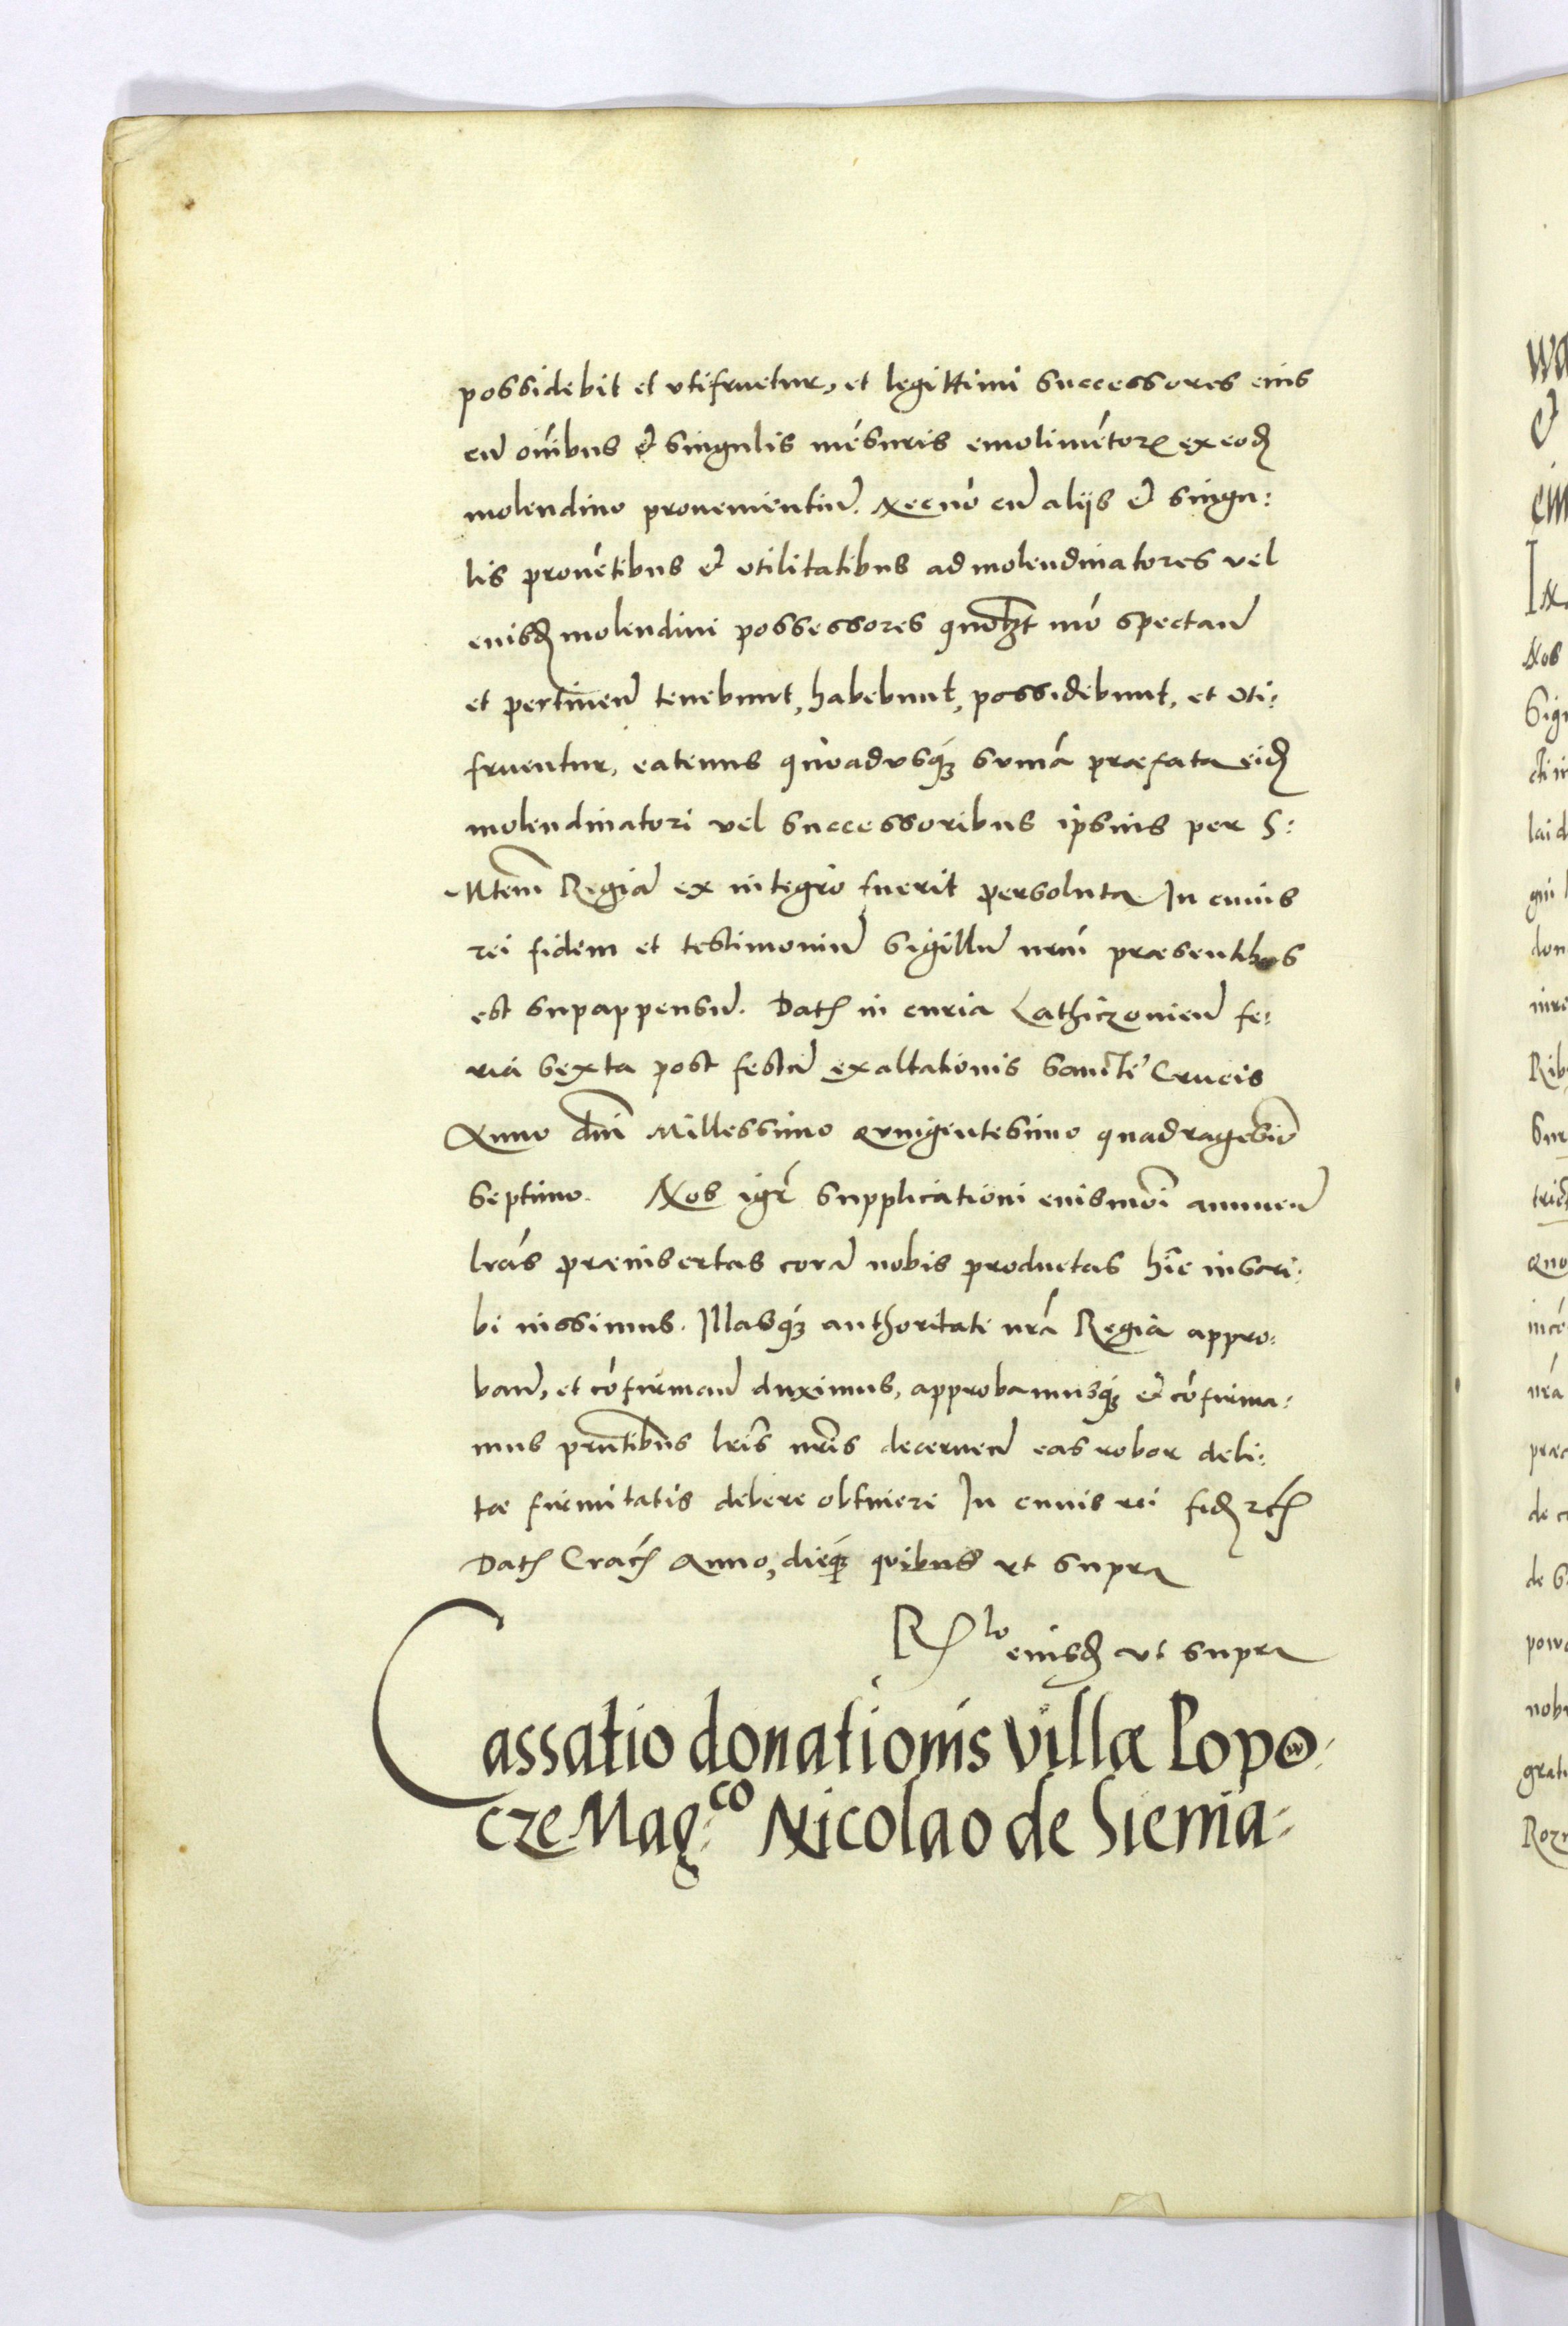 possidebit et vtifruetur, et legittimi successores eius
cū oībus et singulis mēsuris emolimētorꝝ ex eodē
molendino prouenientiū. Necnō cū alijs et singu:
lis prouētibus et vtilitatibus ad molendinatores vel
eiusdē molendini possessores quōlꝫt mō spectan̄
et pertinen̄ tenebunt, habebunt, possidebunt, et vti:
fruentur, eatenus quoadvsqꝫ sūma præfata eidē
molendinatori vel successoribus ipsius per S:
Mtem̄ Regiā ex integro fuerit persoluta In cuius
rei fidem et testimoniū sigillū nrm̄ præsentibus
est subappensū. Datꝭ in curia Lathiczouien̄ fe:
ria sexta post festū exaltationis sanctæ Crucis
Anno dnī Millessimo quingentesimo quadragesīo
septimo. Nos igr̄ supplicationi eiusmōi annuen̄
lrās præinsertas corā nobis productas hīc inscri:
bi iussimus. Illasqꝫ authoritate nrā Regia appro:
ban̄, et cōfirman̄ duximus, approbamusqꝫ et cōfirma:
mus prn̄tibus lrīs nrīs decernen̄ eas robor debi:
tæ firmitatis debere obtinere In cuius rei fidē ꝛcꝭ
Datꝭ Cracꝭ Anno, dieqꝫ quibus vt supra
Rꝭlo eiusdē vt supra
Cassatio donationis villæ Popo:
cze Mag:co Nicolao de Sienia: